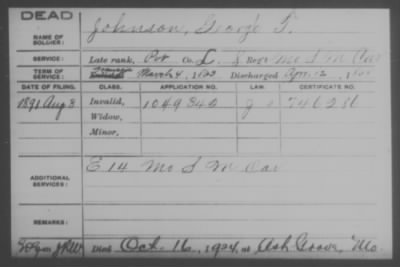 DEAD
NAME OF SOLDIER: Johnson, George T.
SERVICE: Late rank, Pvt Co. L, 8 Reg't Mo S M Cav
TERM OF SERVICE: Enlisted March 4, 1863 Discharged Apr. 12, 1865
DATE OF FILING. CLASS. APPLICATION NO. LAW. CERTIFICATE NO.
1891 Aug 3 Invalid, 1049342 g 746286
Widow,
Minor,
ADDITIONAL SERVICES: E 14 Mo S M Cav
REMARKS:
Died Oct. 16, 1924, at Ash Grove, Mo.